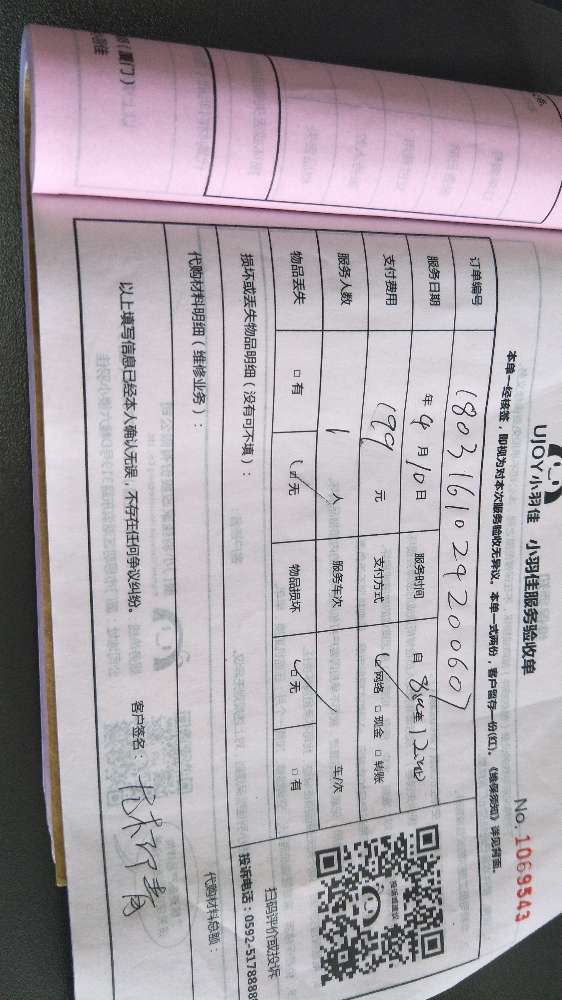 UJOY小羽佳 小羽佳服务验收单
No. 1069543
本单一经核签，即视为对本次服务验收无异议。本单一式两份，客户留存一份(红)。《维保须知》详见背面。
订单编号 180316102920607
服务日期 年 4 月 10 日 服务时间 自 8:00至 12:00
支付费用 199 元 支付方式 ☑网络 □现金 □转账
服务人数 1 人 服务车次 车/次
物品丢失 □有 ☑无 物品损坏 ☑无 □有
损坏或丢失物品明细（没有可不填）：
代购材料明细（维修业务）：
代购材料总额：
以上填写信息已经本人确认无误，不存在任何争议纠纷。
客户签名：
投诉或建议
扫码评价或投诉
投诉电话：0592-5178888
（厦门）